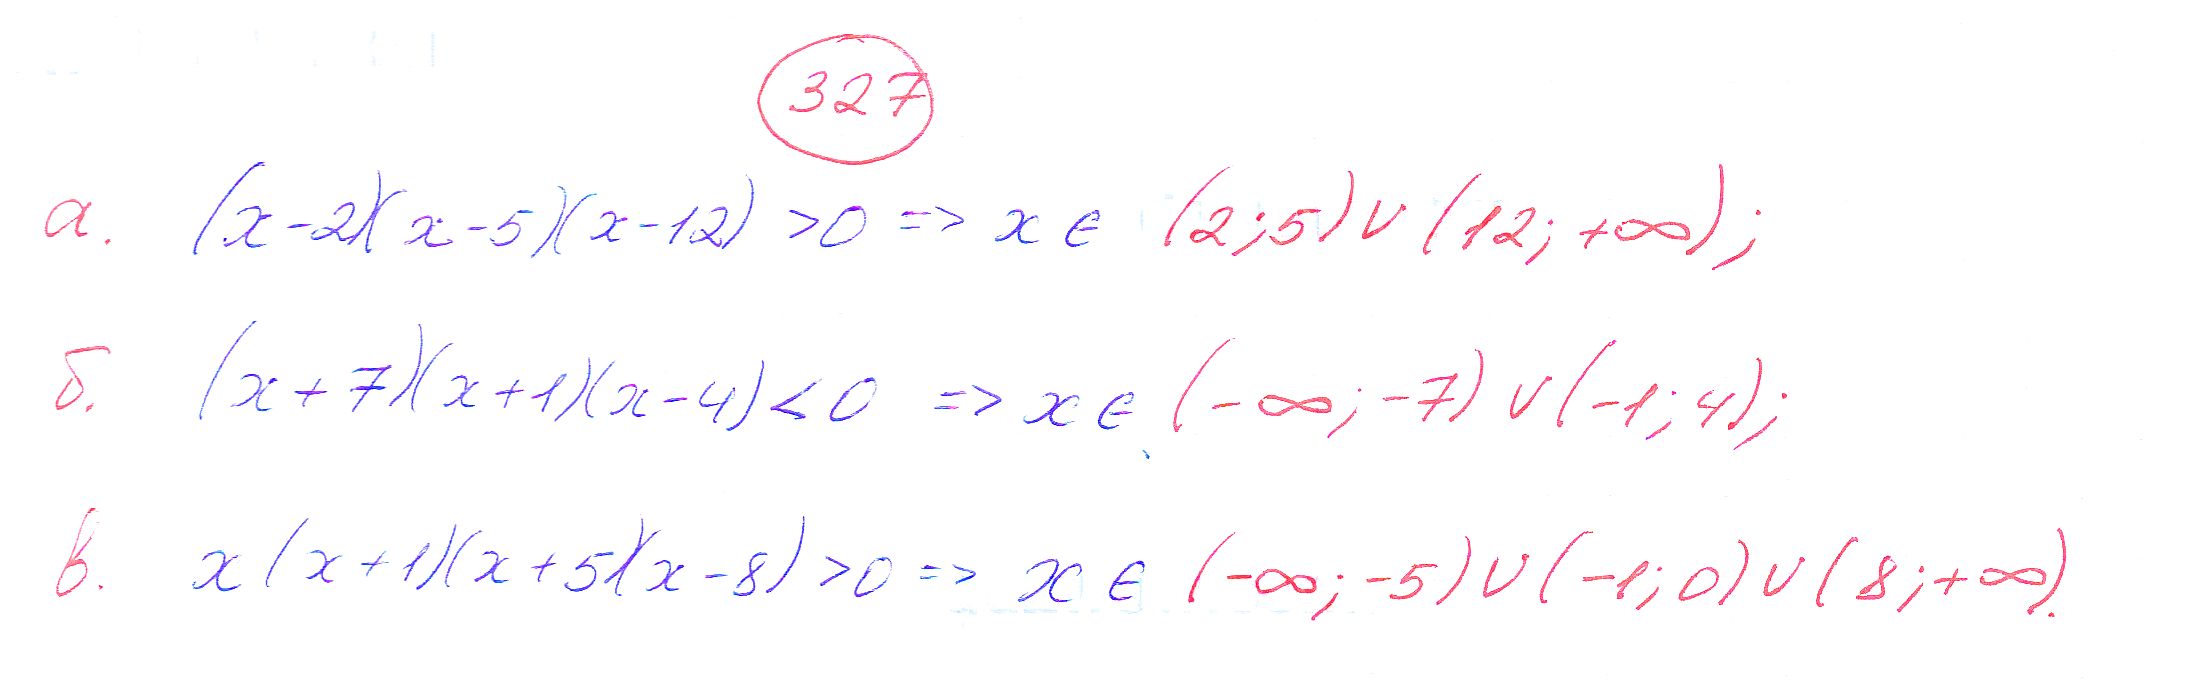 327
а. (x-2)(x-5)(x-12)>0 => x ∈ (2;5)∪(12;+∞);
б. (x+7)(x+1)(x-4)<0 => x ∈ (-∞;-7)∪(-1;4);
в. x(x+1)(x+5)(x-8)>0 => x ∈ (-∞;-5)∪(-1;0)∪(8;+∞).